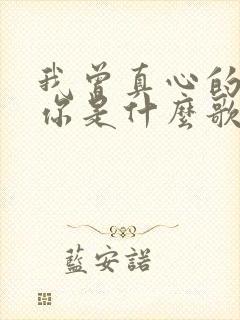 我曾真心的
你是什麼歌
藍安諾